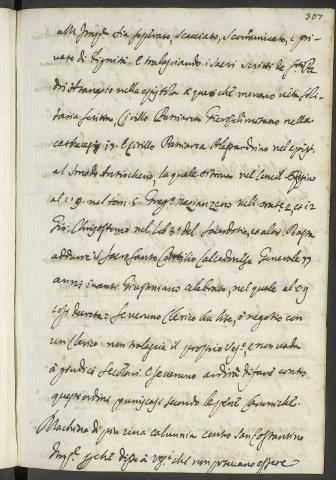 307
alli Preg.ti sia separato, scacciato, scomunicato, e pri-
vato di dignità. E tralasciando i sacri scritti de s.ti Pa-
dri Atanagio nella epistola à quei che menano vita soli-
taria scritta, Cirillo Patriarca Gierosolimitano nella
Cathacesi 17. e Cirillo Patriarca Alessandrino nel epist.
al Sinodo Antiocheno, la quale si trova nel Concil. Effesino
al c. 9. nel tom. 5. Greg.o nazianzeno nell' orat. 2, e 12
Gio: Chrisostomo nel Lib. 3.o del Sacerdotio, et altri. Basta
addurre il Sacro Santo Concilio Calcedonense Generale 77
annis inanti Giustiniano celebrato, nel quale al c. 9
così decreta: Se veruno Clerico ha lite, ò negotio con
un Clerico, non tralascia il proprio Ves.o, e non vada
à giudici secolari. E se veruno ardirà di fare contro
questi ordini puniscasi secondo le pene Canoniche.
Machina di più una calunnia contro San Costantino
Imp.e perchè disse à Ves.vi che non potevano essere